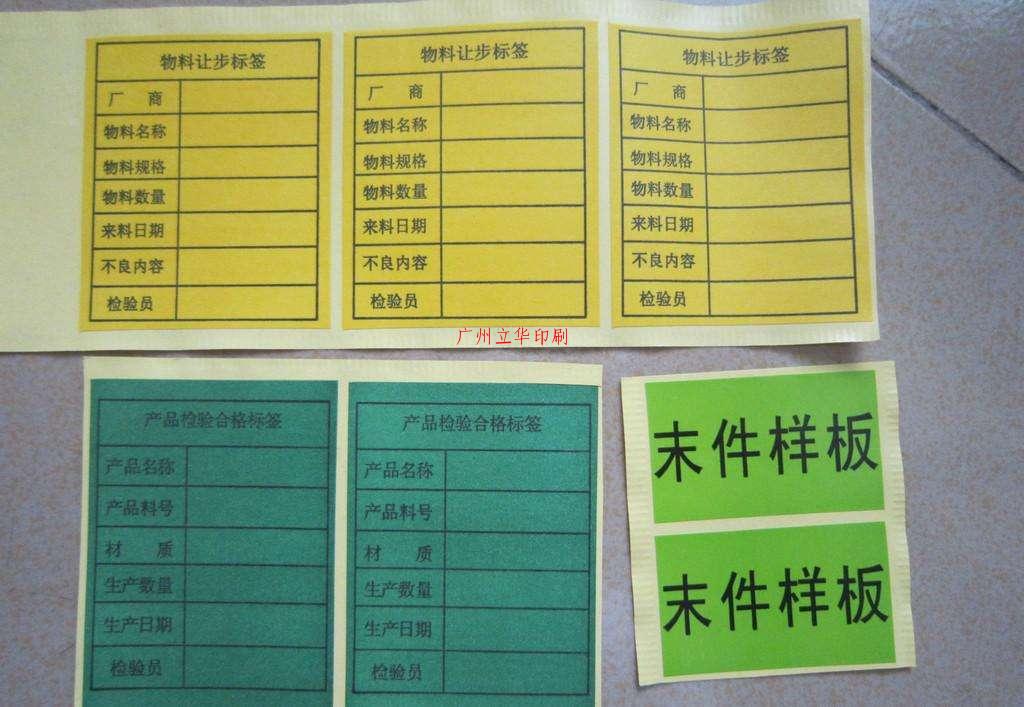 物料让步标签
厂 商
物料名称
物料规格
物料数量
来料日期
不良内容
检验员
物料让步标签
厂 商
物料名称
物料规格
物料数量
来料日期
不良内容
检验员
物料让步标签
厂 商
物料名称
物料规格
物料数量
来料日期
不良内容
检验员
广州立华印刷
产品检验合格标签
产品名称
产品料号
材 质
生产数量
生产日期
检验员
产品检验合格标签
产品名称
产品料号
材 质
生产数量
生产日期
检验员
末件样板
末件样板